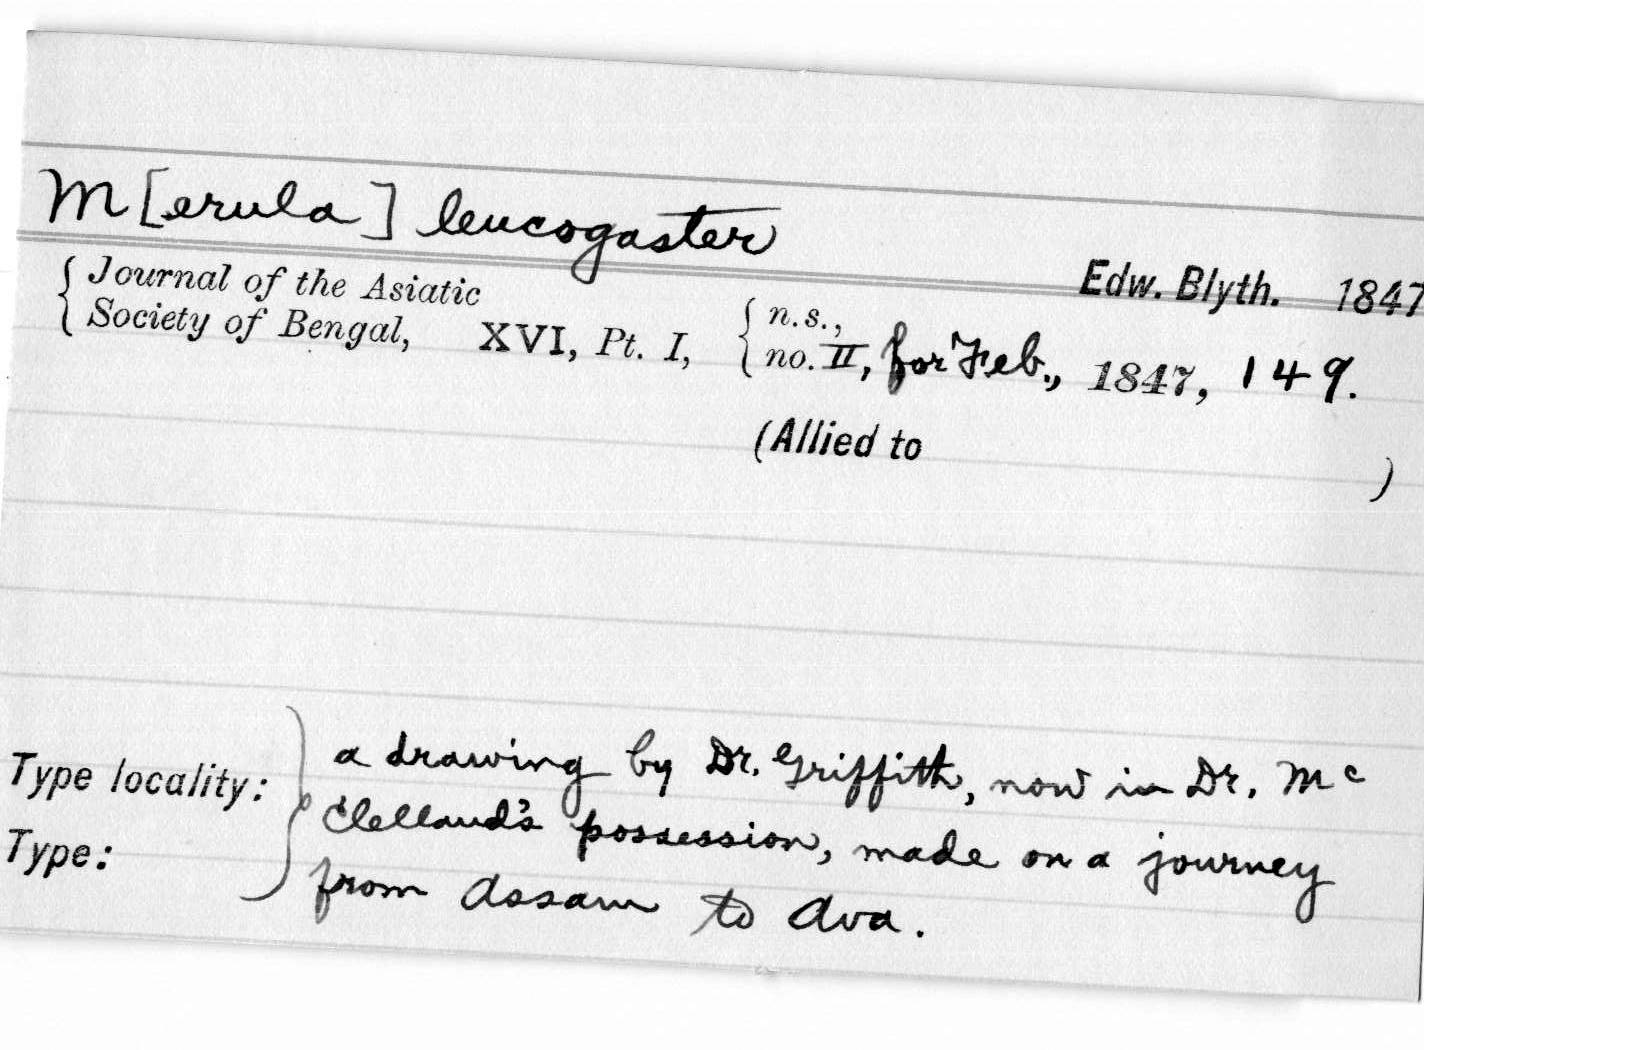 M[erula] leucogaster
Edw. Blyth. 1847
Journal of the Asiatic
Society of Bengal, XVI, Pt. I, n.s.,
no. II, for Feb., 1847, 149.
(Allied to )
Type locality: a drawing by Dr. Griffith, now in Dr. Mc
Clelland's possession, made on a journey
Type: from Assam to Ava.